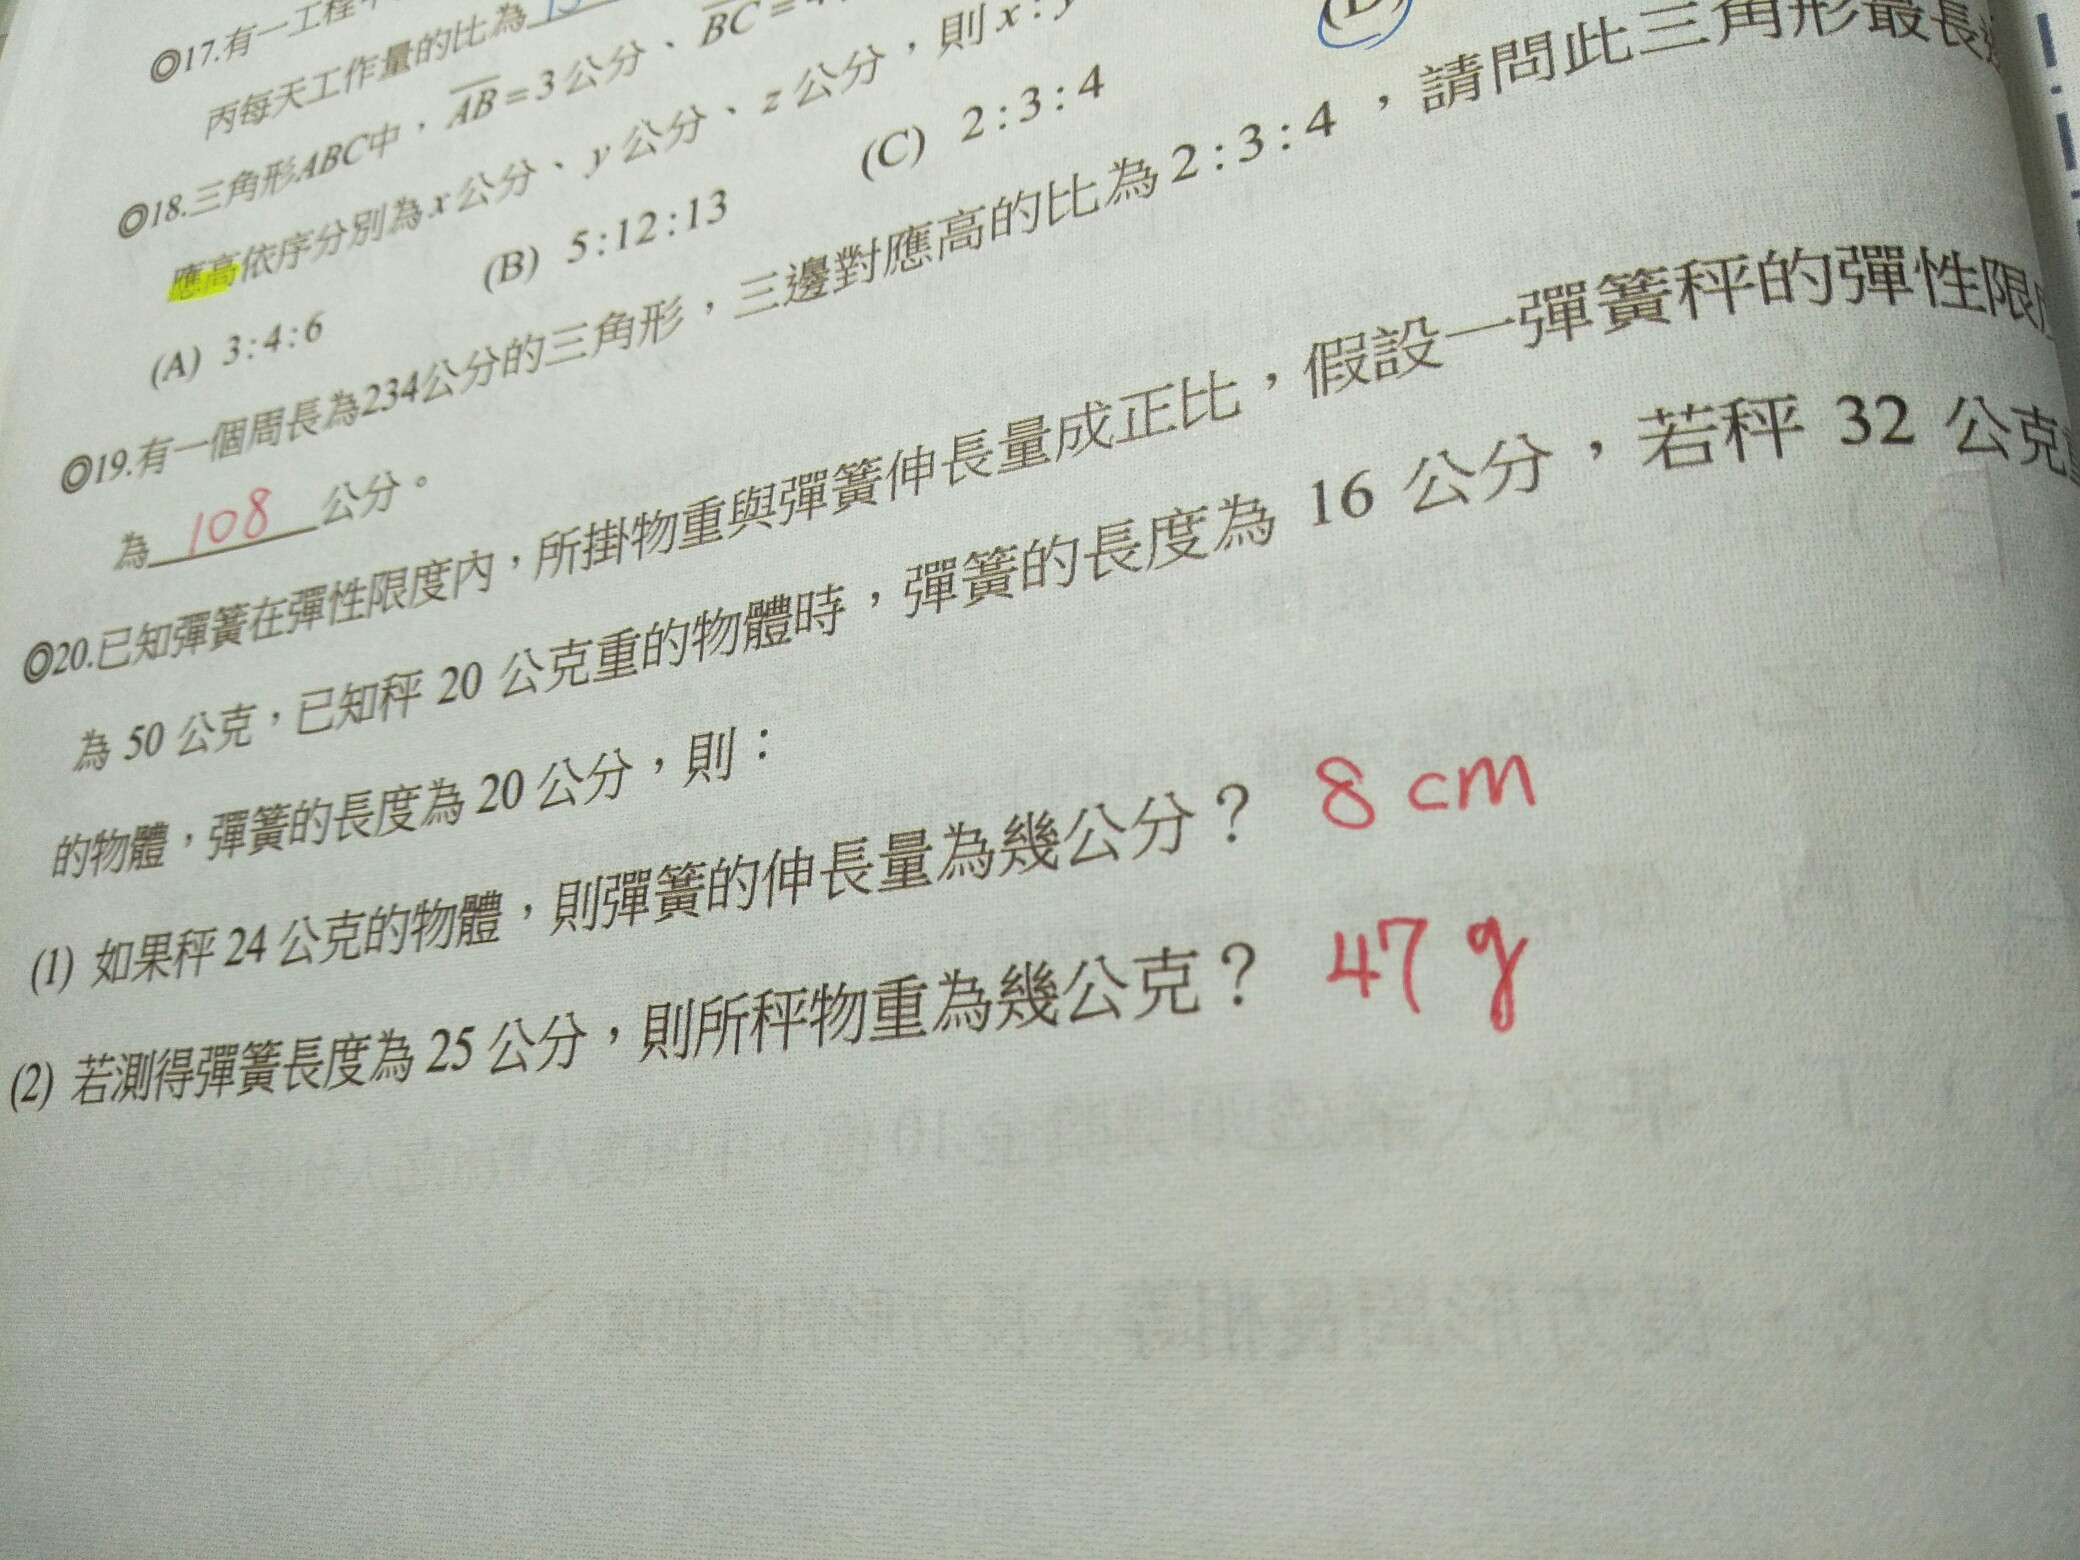 ◎17.有一工程
丙每天工作量的比為
◎18.三角形ABC中，AB=3公分、BC=
應高依序分別為x公分、y公分、z公分，則x:y
(A) 3:4:6 (B) 5:12:13 (C) 2:3:4 (D)
◎19.有一個周長為234公分的三角形，三邊對應高的比為2:3:4，請問此三角形最長
為108公分。
◎20.已知彈簧在彈性限度內，所掛物重與彈簧伸長量成正比，假設一彈簧秤的彈性限
為 50 公克，已知秤 20 公克重的物體時，彈簧的長度為 16 公分，若秤 32 公克
的物體，彈簧的長度為 20 公分，則：
(1) 如果秤 24 公克的物體，則彈簧的伸長量為幾公分？ 8 cm
(2) 若測得彈簧長度為 25 公分，則所秤物重為幾公克？ 47 g